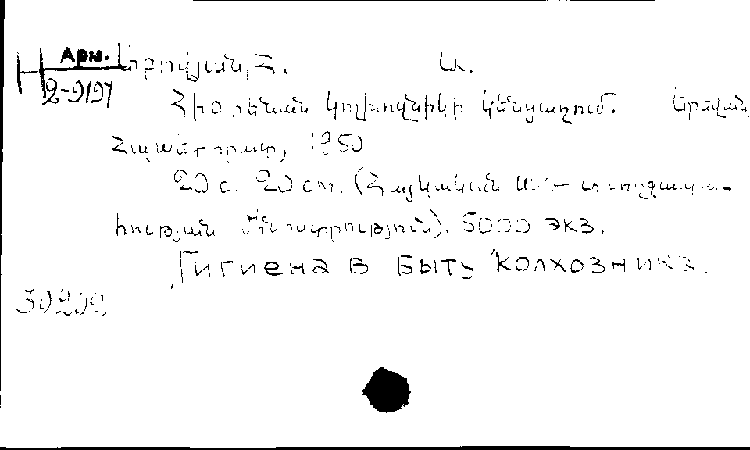 Арм.
2-9197
Հ. Ա.
Հիգիենան կոլխոզնիկի կենցաղում. Երևան,
Հայպետհրատ, 1950
20 с. 20 см. (Հայկական ՍՍՌ առողջապա-
հության մինիստրություն). 5000 экз.
Гигиена в быту колхозника.
30200